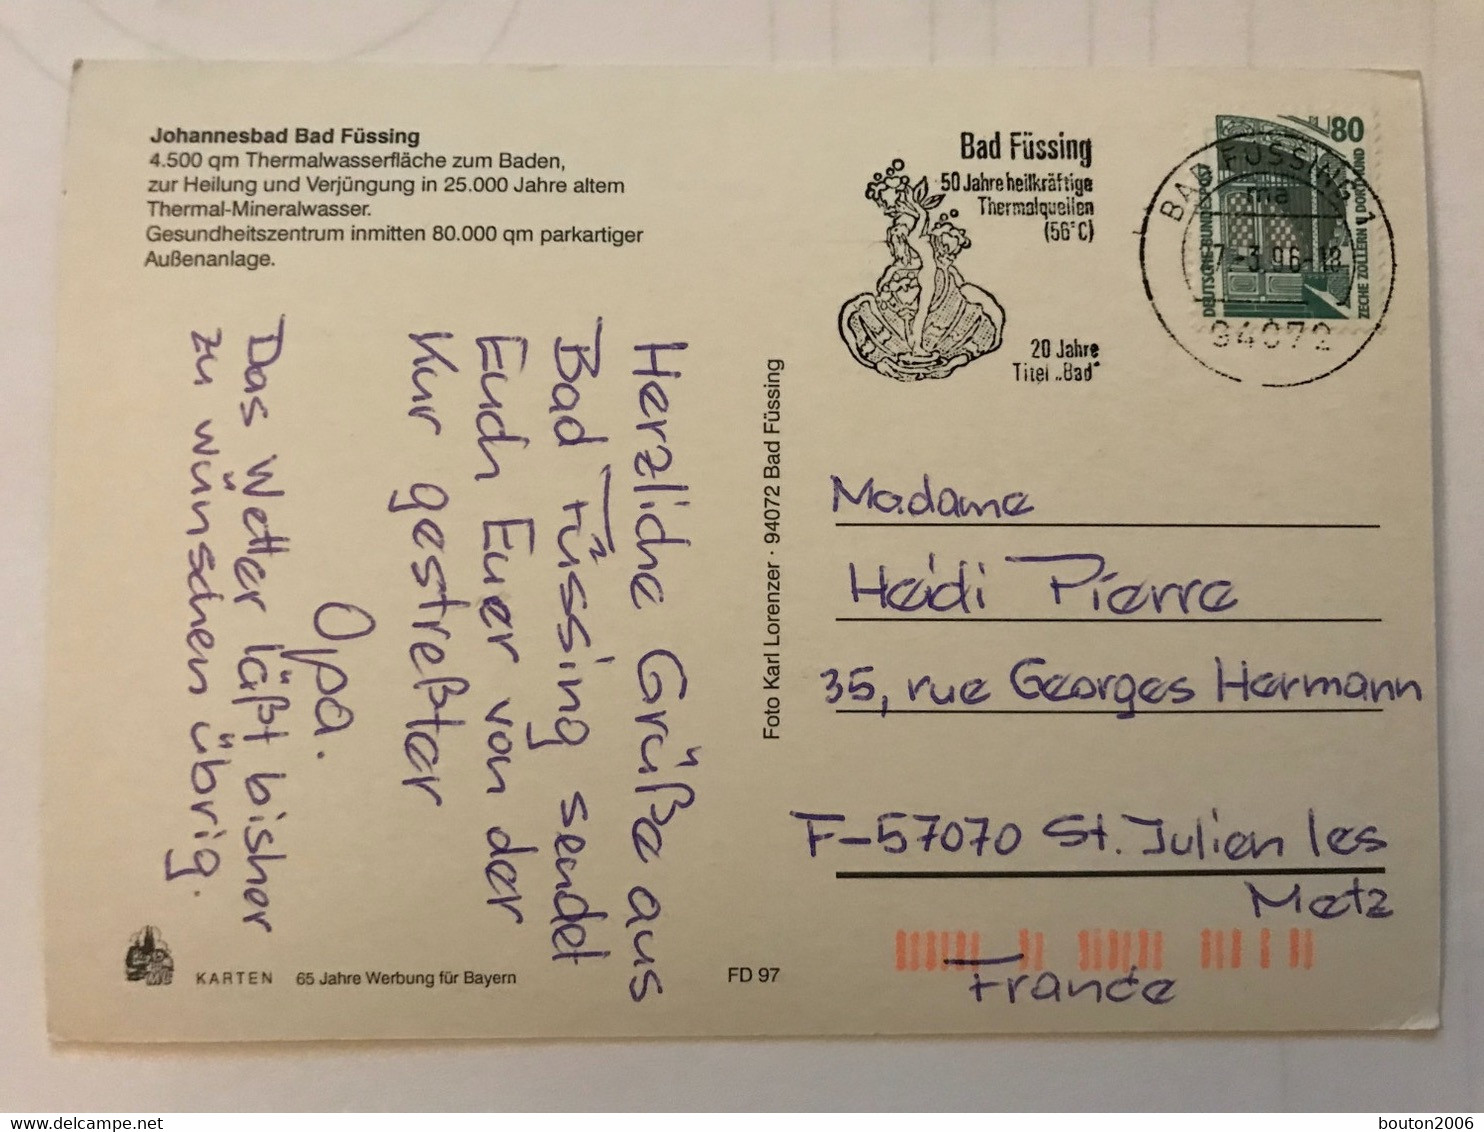 Johannesbad Bad Füssing
4.500 qm Thermalwasserfläche zum Baden,
zur Heilung und Verjüngung in 25.000 Jahre altem
Thermal-Mineralwasser.
Gesundheitszentrum inmitten 80.000 qm parkartiger
Außenanlage.
Herzliche Grüße aus
Bad Füssing sendet
Euch Euer von der
Kur gestreßter
Opa.
Das Wetter läßt bisher
zu wünschen übrig.
KARTEN 65 Jahre Werbung für Bayern
FD 97
Foto Karl Lorenzer · 94072 Bad Füssing
Bad Füssing
50 Jahre heilkräftige
Thermalquellen
(56°C)
20 Jahre
Titel „Bad"
BAD FÜSSING 1
ma
7.-3.96-18
94072
80
DEUTSCHE BUNDESPOST
ZECHE ZOLLERN II DORTMUND
Madame
Heidi Pierre
35, rue Georges Hermann
F-57070 St. Julien les
Metz
France
delcampe.net
bouton2006